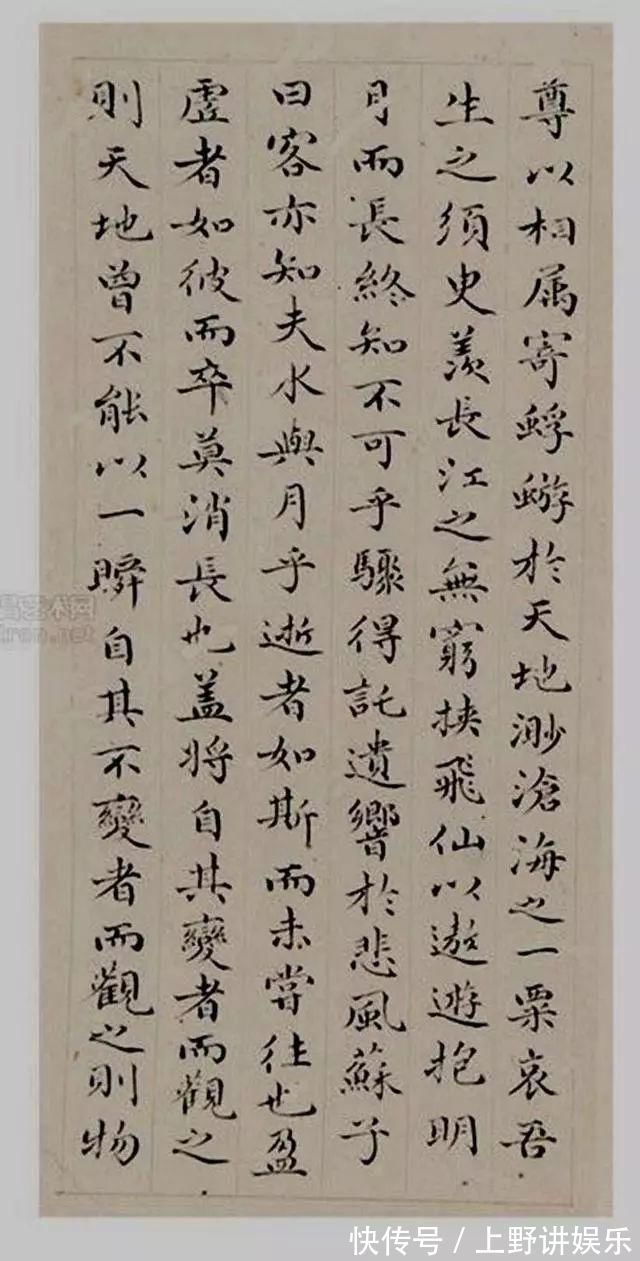 尊以相属寄蜉蝣於天地渺滄海之一粟哀吾
生之須臾羨長江之無窮挟飛仙以遨遊抱明
月而長終知不可乎驟得託遺響於悲風蘇子
曰客亦知夫水與月乎逝者如斯而未嘗往也盈
虛者如彼而卒莫消長也盖將自其變者而觀之
則天地曾不能以一瞬自其不變者而觀之則物
艺术网
.net
快传号/上野讲娱乐